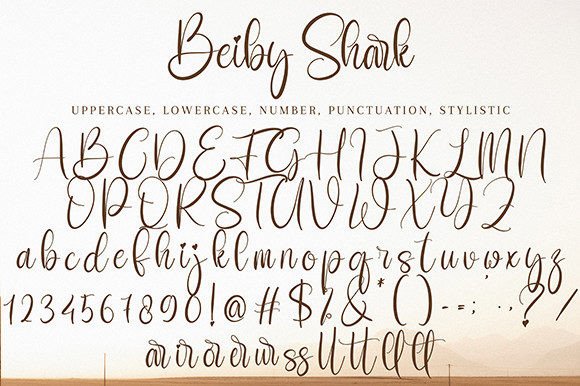 Beiby Shark
UPPERCASE, LOWERCASE, NUMBER, PUNCTUATION, STYLISTIC
ABCDEFGHIJKLMN
OPQRSTUVWXYZ
abcdefghijklmnopqrstuvwxyz
1234567890!@#$%&*()-=:;.,?/
ar ir or er ur ss ll tt